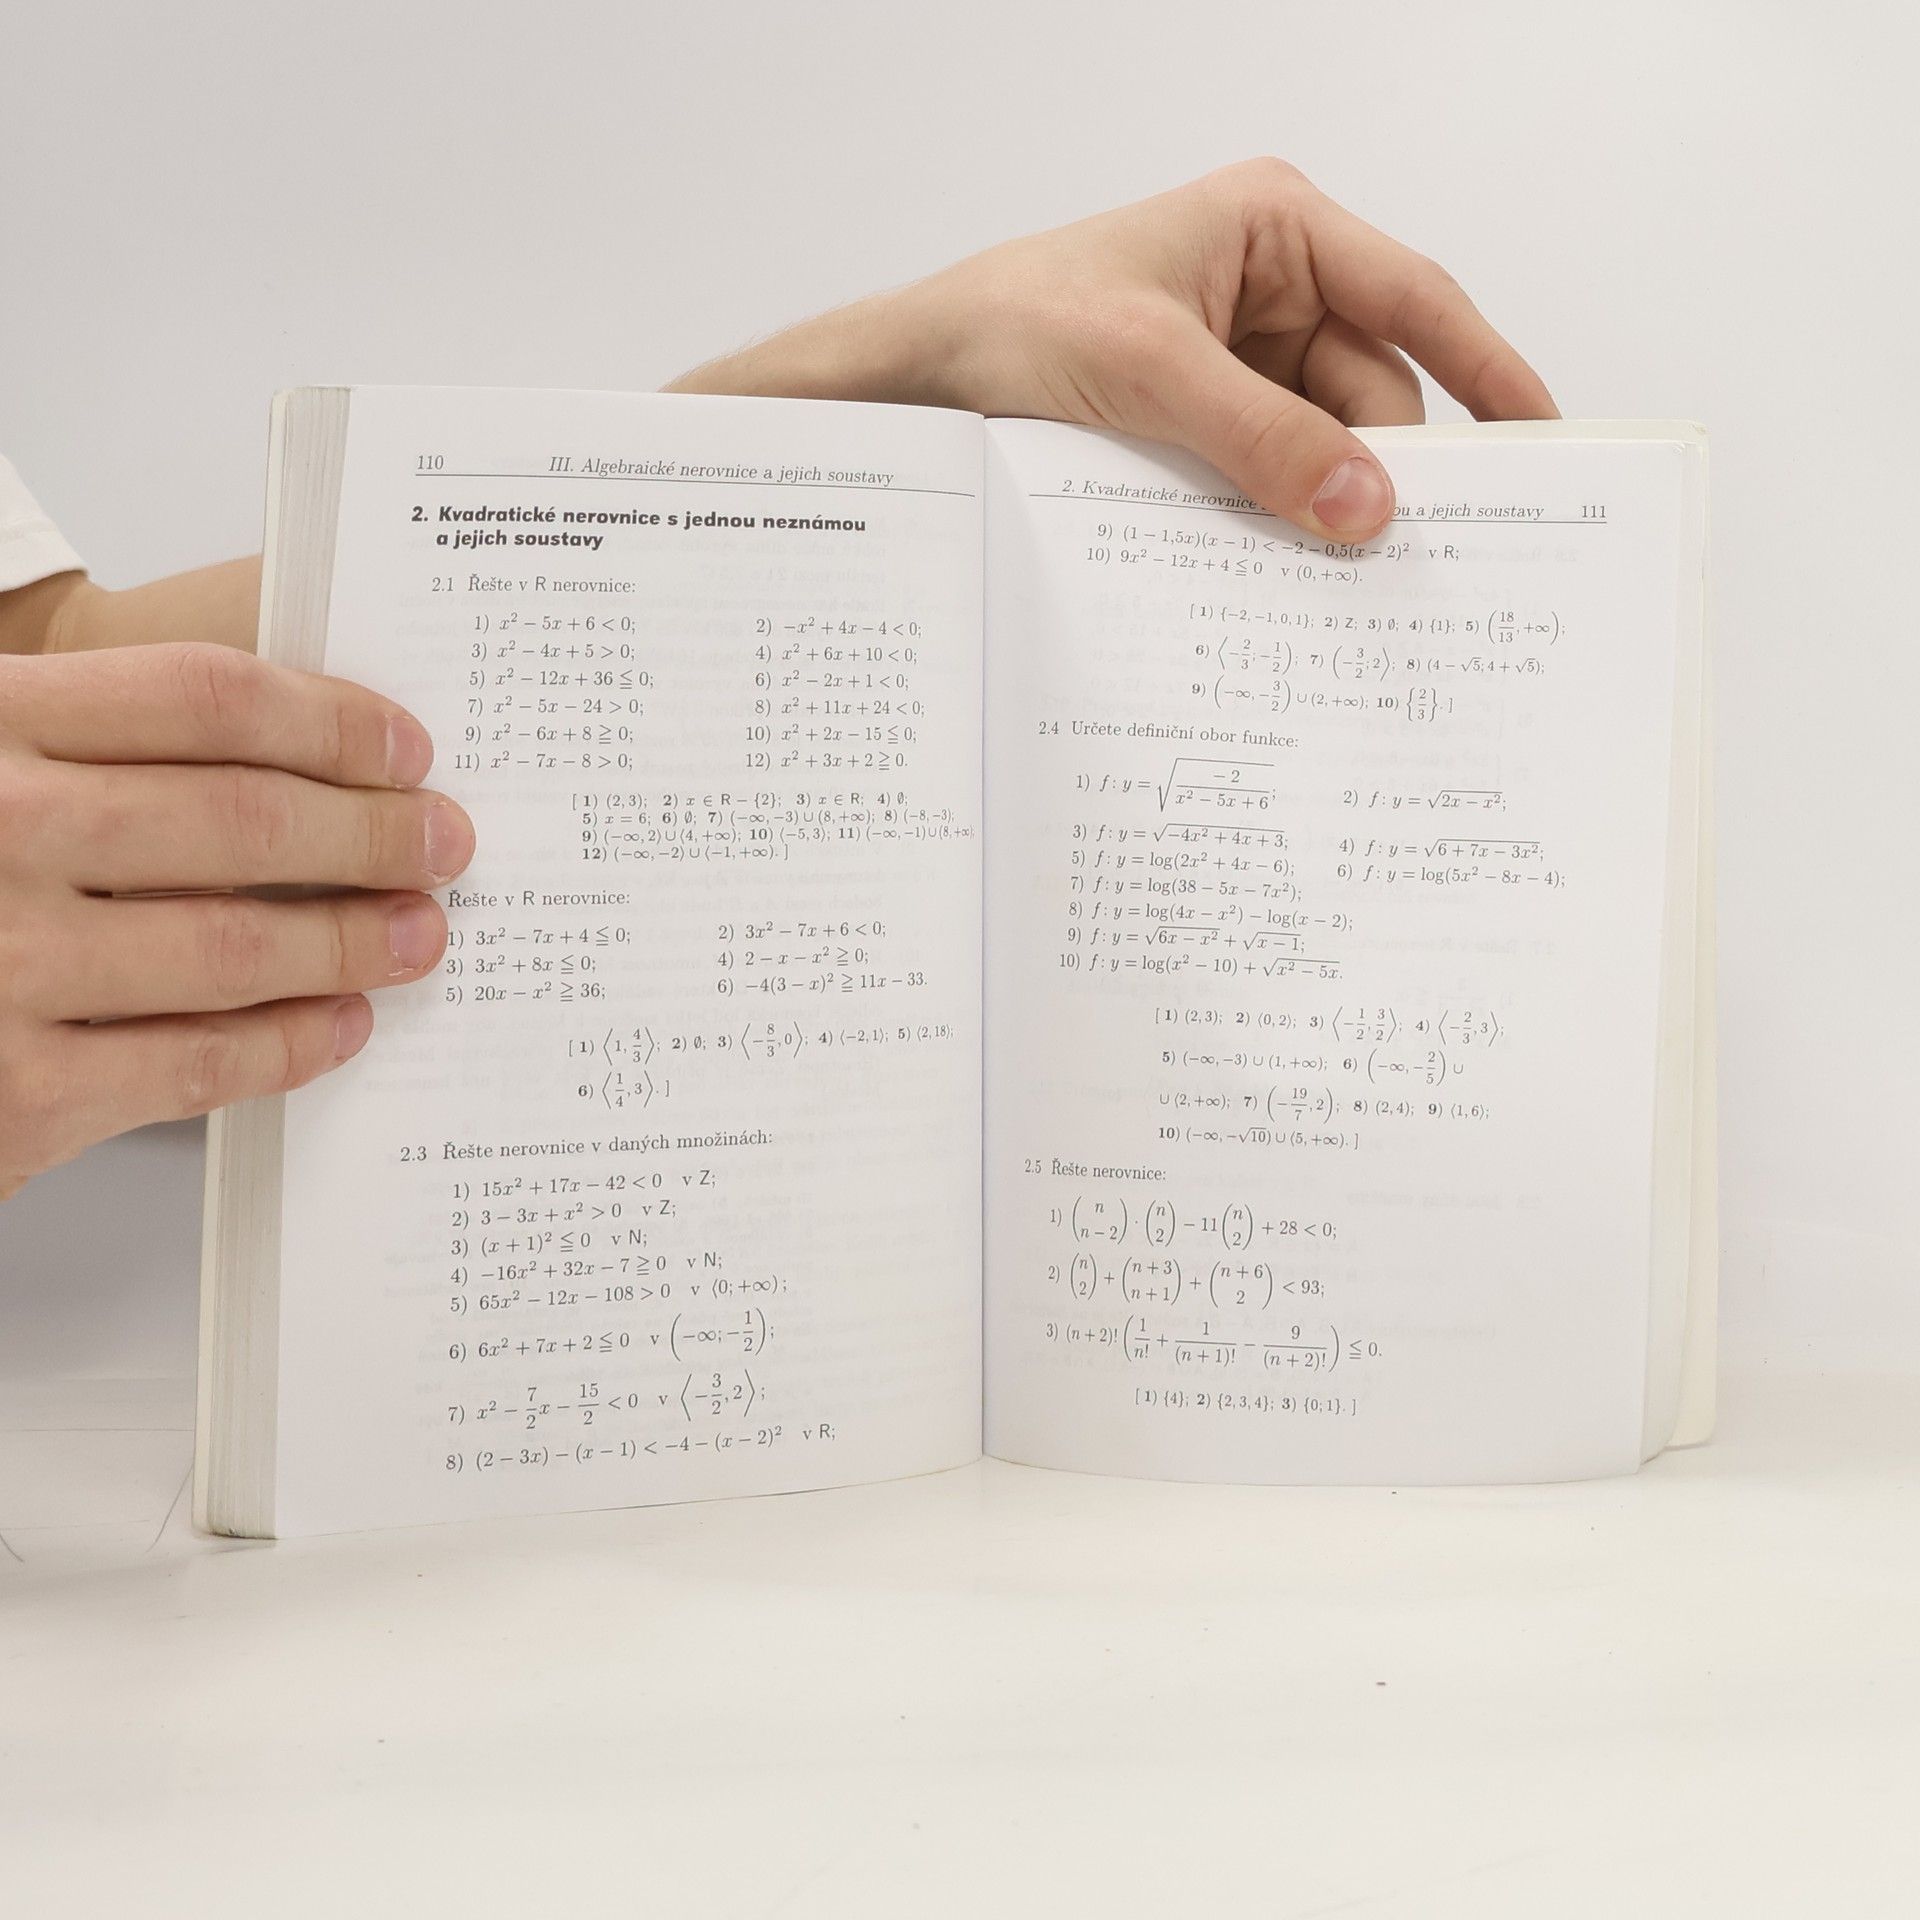 110 III. Algebraické nerovnice a jejich soustavy
2. Kvadratické nerovnice s jednou neznámou
a jejich soustavy
2.1 Řešte v R nerovnice:
1) x² − 5x + 6 < 0; 2) −x² + 4x − 4 < 0;
3) x² − 4x + 5 > 0; 4) x² + 6x + 10 < 0;
5) x² − 12x + 36 ≦ 0; 6) x² − 2x + 1 < 0;
7) x² − 5x − 24 > 0; 8) x² + 11x + 24 < 0;
9) x² − 6x + 8 ≧ 0; 10) x² + 2x − 15 ≦ 0;
11) x² − 7x − 8 > 0; 12) x² + 3x + 2 ≧ 0.
[ 1) (2,3); 2) x ∈ R − {2}; 3) x ∈ R; 4) ∅;
5) x = 6; 6) ∅; 7) (−∞,−3) ∪ (8,+∞); 8) (−8,−3);
9) (−∞,2⟩ ∪ ⟨4,+∞); 10) ⟨−5,3⟩; 11) (−∞,−1) ∪ (8,+∞);
12) (−∞,−2⟩ ∪ ⟨−1,+∞). ]
Řešte v R nerovnice:
1) 3x² − 7x + 4 ≦ 0; 2) 3x² − 7x + 6 < 0;
3) 3x² + 8x ≦ 0; 4) 2 − x − x² ≧ 0;
5) 20x − x² ≧ 36; 6) −4(3 − x)² ≧ 11x − 33.
[ 1) ⟨1, 4/3⟩; 2) ∅; 3) ⟨−8/3, 0⟩; 4) ⟨−2,1⟩; 5) ⟨2,18⟩;
6) ⟨1/4, 3⟩. ]
2.3 Řešte nerovnice v daných množinách:
1) 15x² + 17x − 42 < 0 v Z;
2) 3 − 3x + x² > 0 v Z;
3) (x + 1)² ≦ 0 v N;
4) −16x² + 32x − 7 ≧ 0 v N;
5) 65x² − 12x − 108 > 0 v ⟨0; +∞);
6) 6x² + 7x + 2 ≦ 0 v (−∞; −1/2);
7) x² − 7/2 x − 15/2 < 0 v ⟨−3/2, 2⟩;
8) (2 − 3x) − (x − 1) < −4 − (x − 2)² v R;
2. Kvadratické nerovnice ou a jejich soustavy 111
9) (1 − 1,5x)(x − 1) < −2 − 0,5(x − 2)² v R;
10) 9x² − 12x + 4 ≦ 0 v (0, +∞).
[ 1) {−2, −1, 0, 1}; 2) Z; 3) ∅; 4) {1}; 5) (18/13, +∞);
6) ⟨−2/3; −1/2); 7) (−3/2; 2⟩; 8) (4 − √5; 4 + √5);
9) (−∞, −3/2) ∪ (2, +∞); 10) {2/3}. ]
2.4 Určete definiční obor funkce:
1) f: y = √(−2/(x² − 5x + 6)); 2) f: y = √(2x − x²);
3) f: y = √(−4x² + 4x + 3); 4) f: y = √(6 + 7x − 3x²);
5) f: y = log(2x² + 4x − 6); 6) f: y = log(5x² − 8x − 4);
7) f: y = log(38 − 5x − 7x²);
8) f: y = log(4x − x²) − log(x − 2);
9) f: y = √(6x − x²) + √(x − 1);
10) f: y = log(x² − 10) + √(x² − 5x).
[ 1) (2,3); 2) ⟨0,2⟩; 3) ⟨−1/2, 3/2⟩; 4) ⟨−2/3, 3⟩;
5) (−∞,−3) ∪ (1,+∞); 6) (−∞, −2/5) ∪
∪ (2,+∞); 7) (−19/7, 2); 8) (2,4); 9) ⟨1,6⟩;
10) (−∞,−√10) ∪ ⟨5,+∞). ]
2.5 Řešte nerovnice:
1) (n n − 2) · (n 2) − 11 (n 2) + 28 < 0;
2) (n 2) + (n + 3 n + 1) + (n + 6 2) < 93;
3) (n + 2)! (1/n! + 1/(n + 1)! − 9/(n + 2)!) ≦ 0.
[ 1) {4}; 2) {2, 3, 4}; 3) {0; 1}. ]